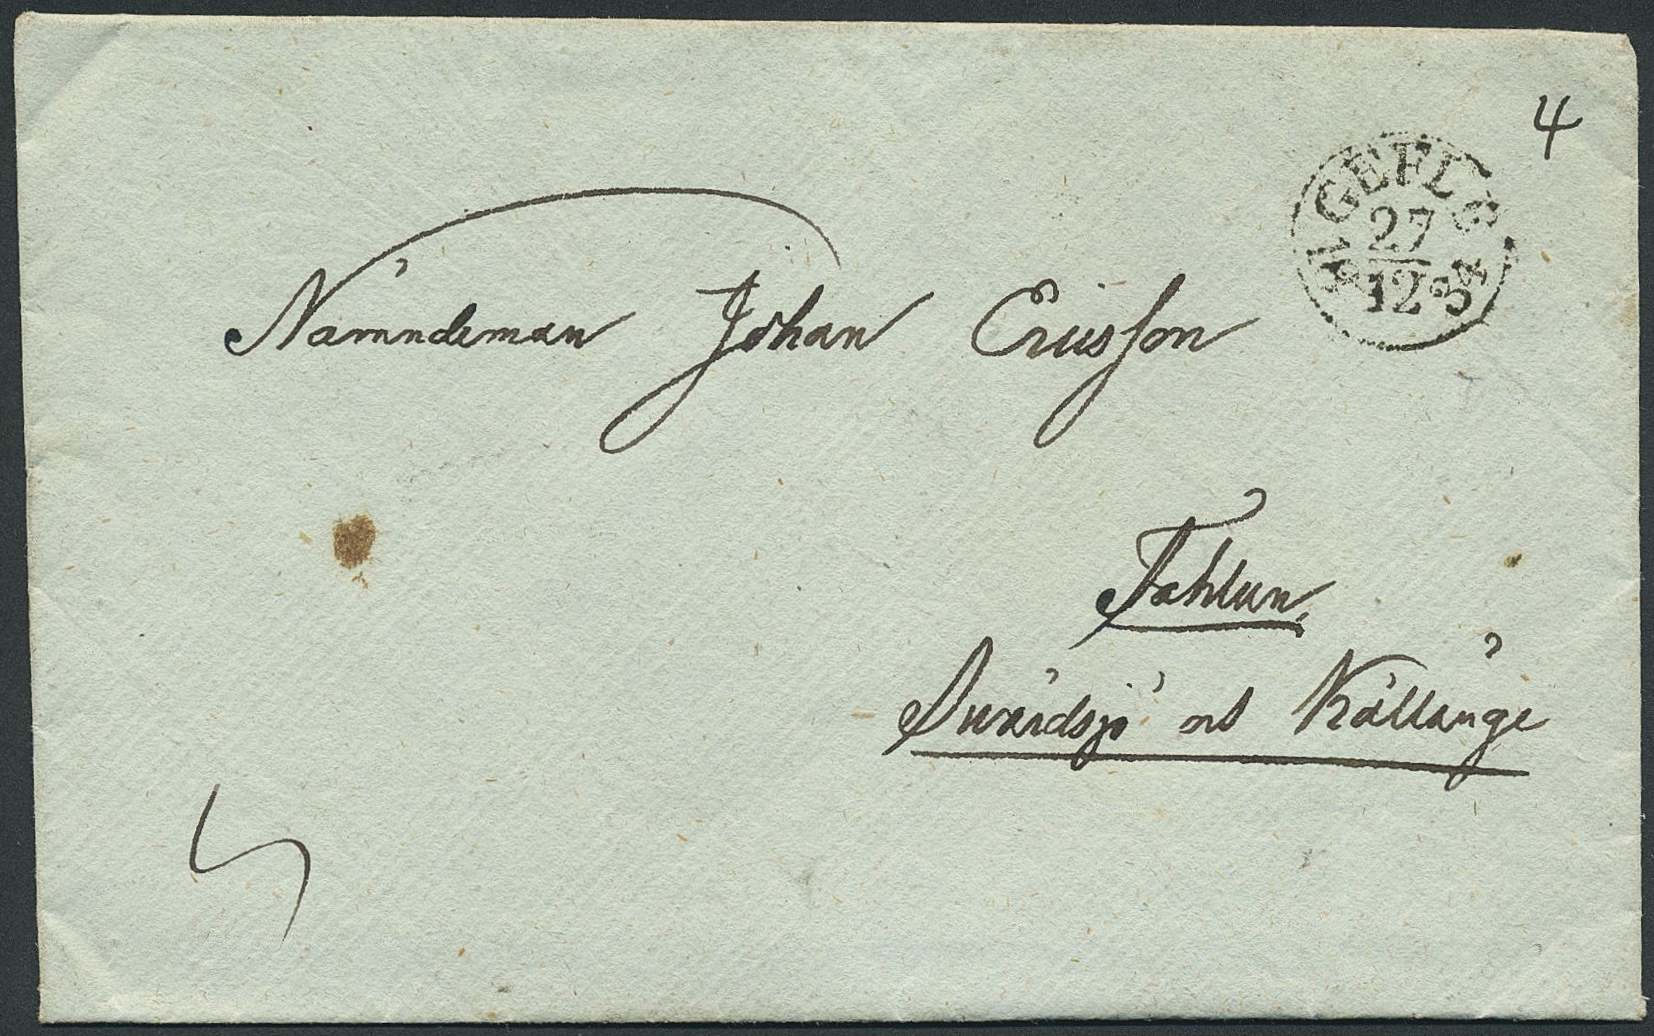 4
GEFLE
27
12
Nämndeman Johan Ericsson
Fahlun
Swärdsjö och Källänge